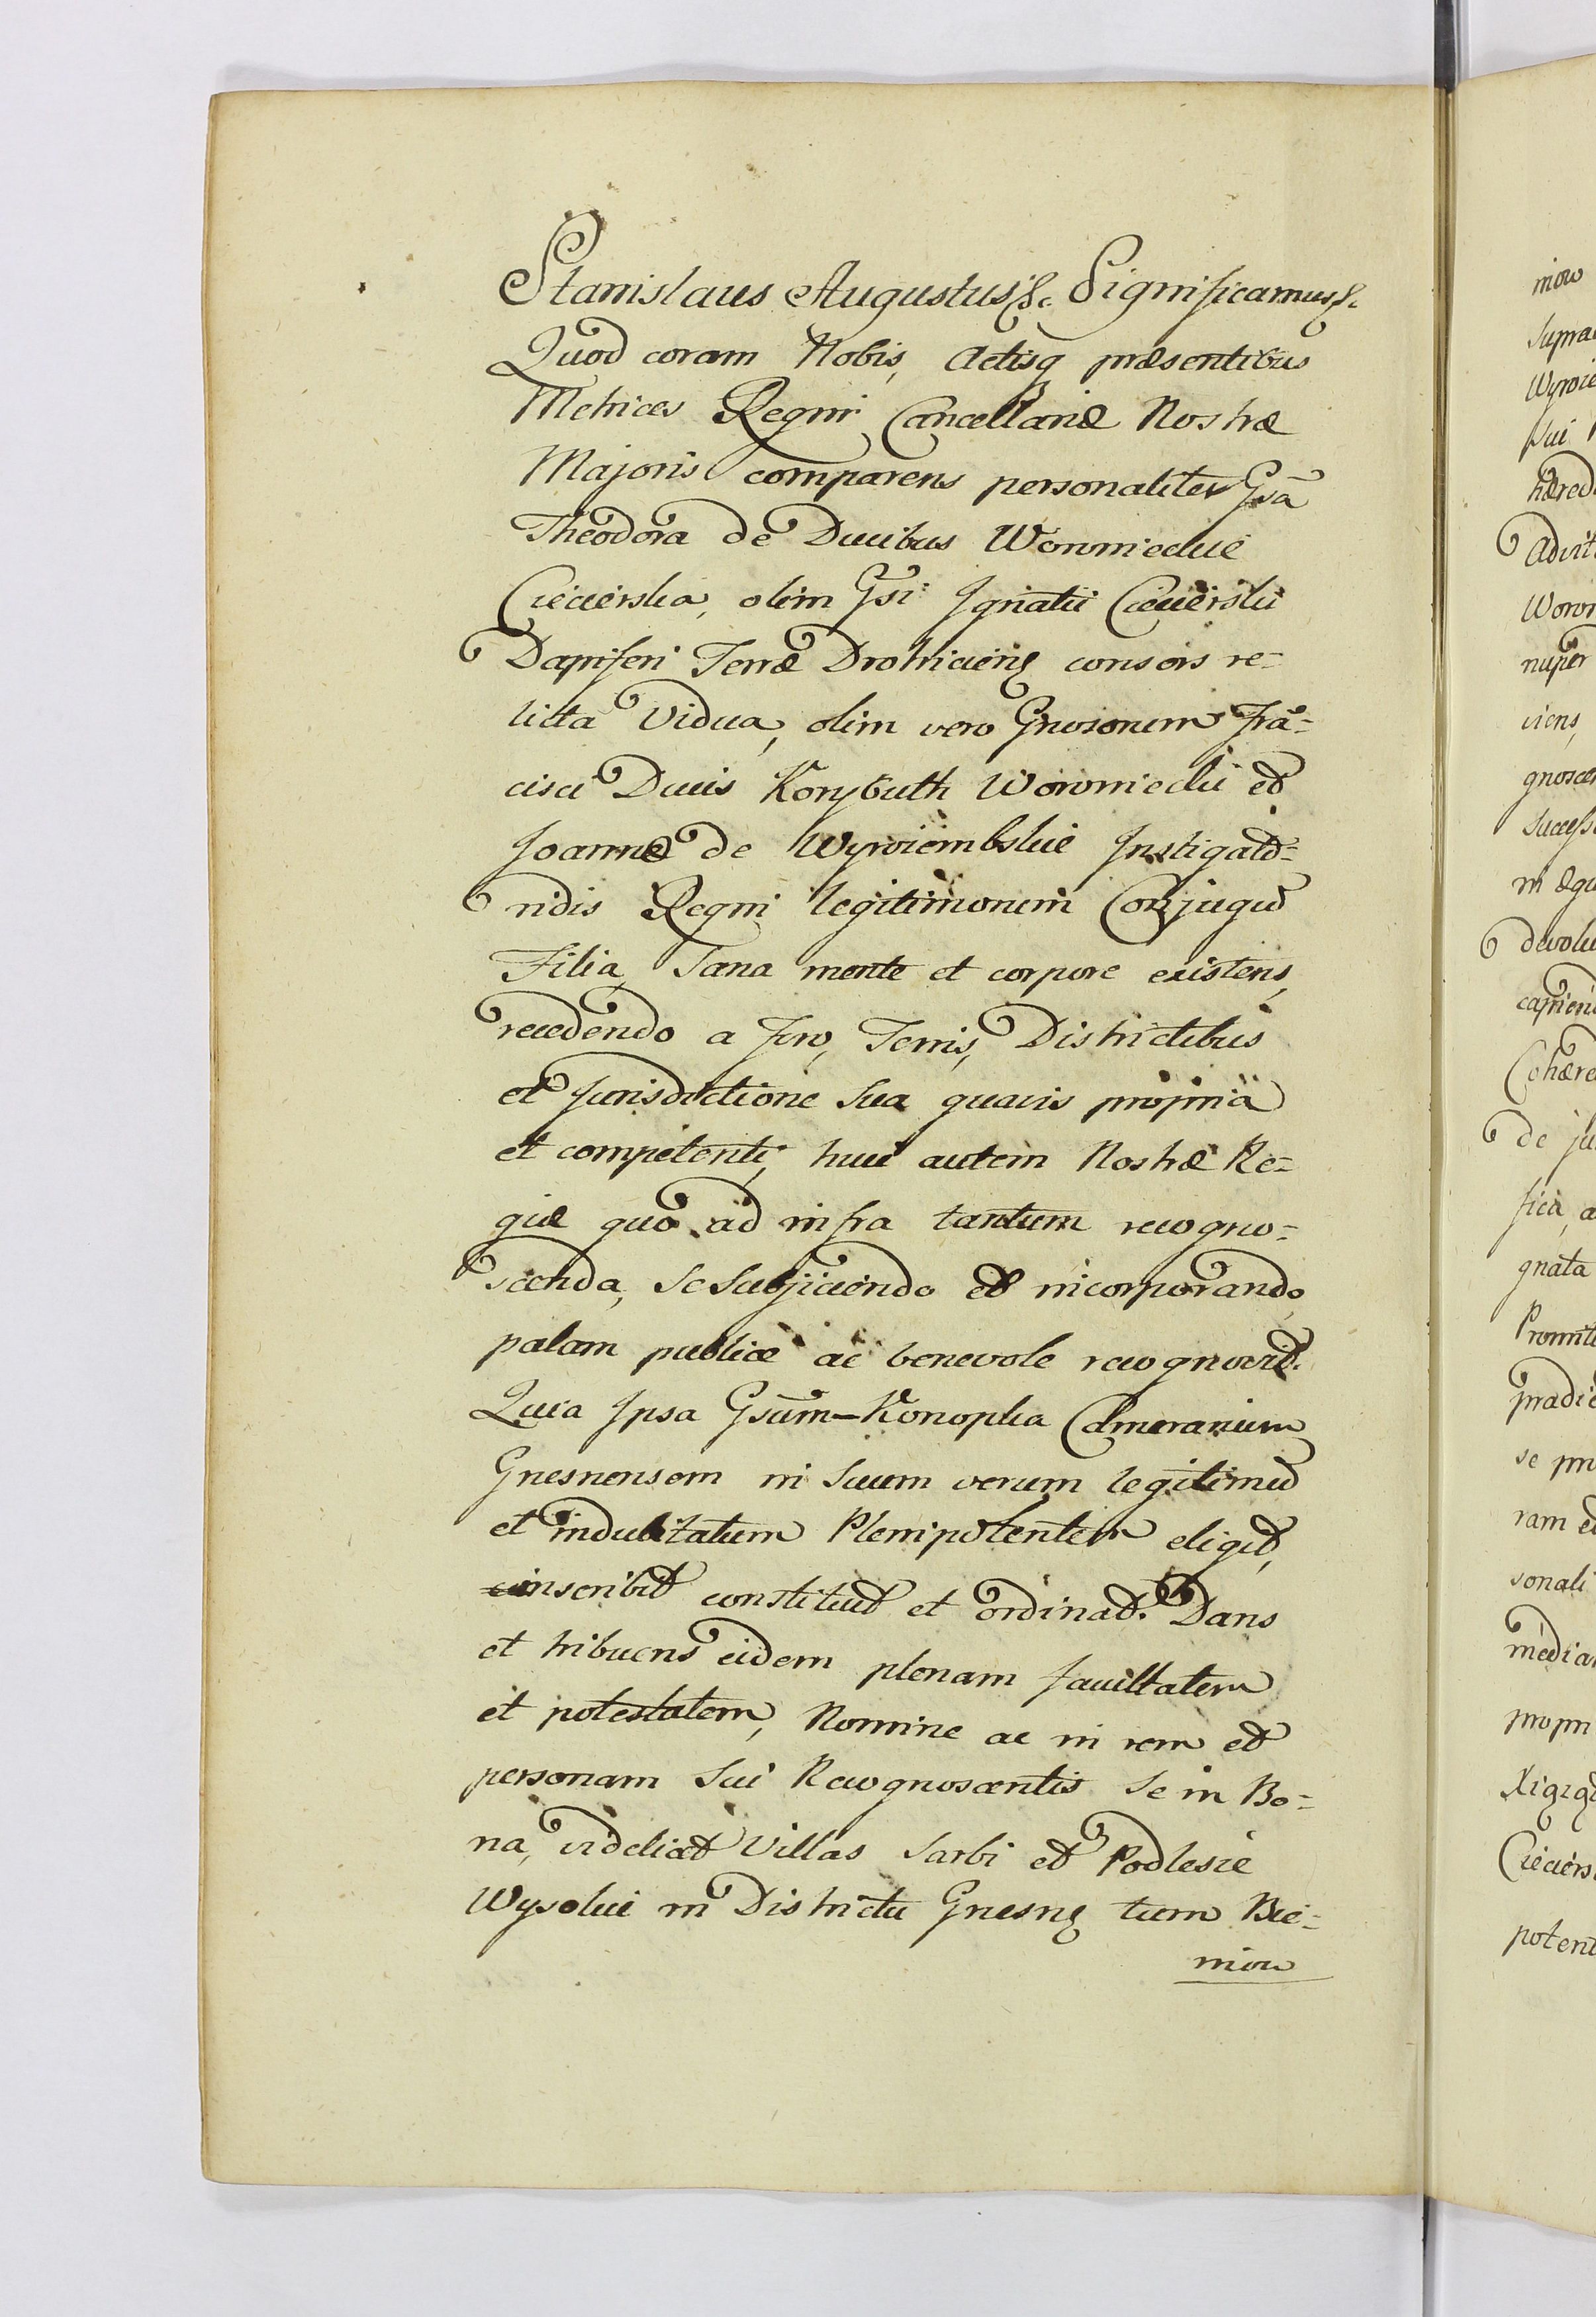 Stanislaus Augustus &c. Significamus &c.
Quod coram Nobis, Actisq præsentibus
Metrices Regni Cancellariæ Nostræ
Majoris comparens personaliter Gsa
Theodora de Ducibus Woronieckie
Ciecierska, olim Gsi: Ignatii Ciecierski
Dapiferi Terræ Drohiciens consors re=
licta Vidua, olim vero Gnosorum Frã=
cisci Ducis Korybuth Woroniecki et
Joannæ de Wyroiembskie Instigato=
ridis Regni legitimorum Conjugũ
Filia, Sana mente et corpore existens,
recedendo a Foro, Terris, Districtibus
et Jurisdictione Sua quavis propria
et competenti, huic autem Nostræ Re=
giæ quo ad infra tantum recogno=
scenda, se Subjiciendo et incorporando,
palam publice ac benevole recognovit.
Quia Ipsa Gsum Konopka Camerarium
Gnesnensem in Suum verum legitimũ
et indubitatum Plenipotentem eligit,
inscribit constituit et ordinat. Dans
et tribuens eidem plenam facultatem
et potestatem, Nomine ac in rem et
personam Sui Recognoscentis se in Bo=
na, videlicet Villas Sarbi et Podlesie
Wysokie in Districtu Gnesns tum Bie=
niow
niow
Wyroie
hæred
Woron
nuper
de ju
gnata
se pro
ram et
sonali
propri
potent